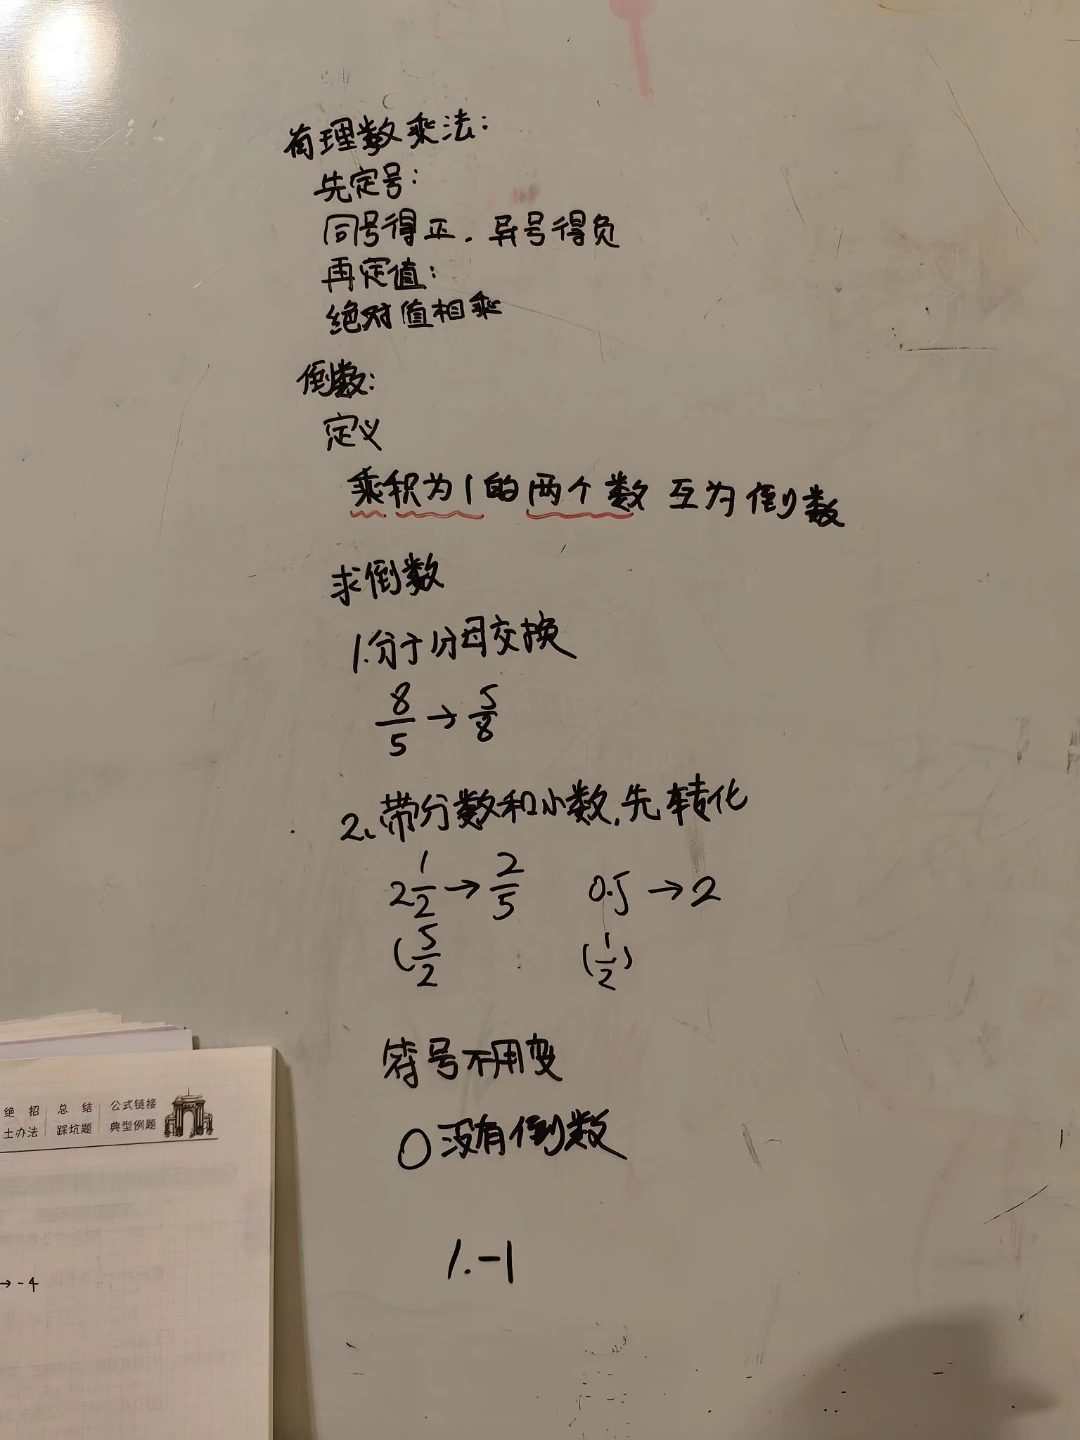 有理数乘法:
先定号:
同号得正.异号得负
再定值:
绝对值相乘
倒数:
定义
乘积为1的两个数互为倒数
求倒数
1.分子分母交换
8/5→5/8
2、带分数和小数,先转化
2 1/2→2/5 0.5→2
(5/2 (1/2)
符号不用变
0没有倒数
1.-1
绝招 总结 公式链接
土办法 踩坑题 典型例题
→-4